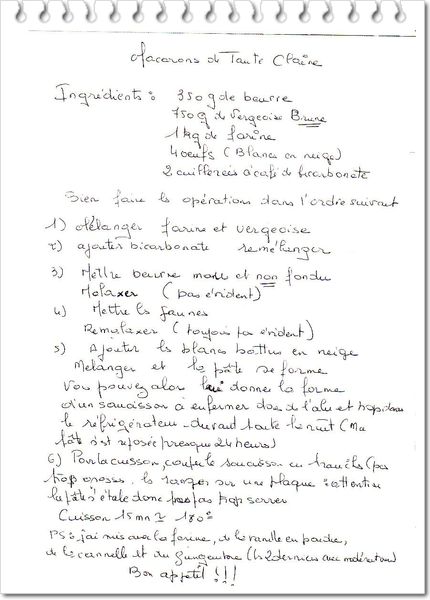 Macarons de Tante Claire
Ingrédients : 350 g de beurre
750 g de Vergeoise Brune
1 kg de farine
4 oeufs (Blancs en neige)
2 cuillerées à café de bicarbonate
Bien faire les opérations dans l'ordre suivant
1) Mélanger farine et vergeoise
2) ajouter bicarbonate remélanger
3) Mettre beurre mou et non fondu
Malaxer (pas évident)
4) Mettre les jaunes
Remalaxer (toujours pas évident)
5) Ajouter les blancs battus en neige
Melanger et la pâte se forme
Vous pouvez alors lui donner la forme
d'un saucisson à enfermer dans de l'alu et hop dans
le réfrigérateur durant toute la nuit (Ma
pâte s'est reposée presque 24 heures)
6) Pour la cuisson, couper le saucisson en tranches (pas
trop grosses, les ranger sur une plaque : attention
la pâte s'étale donc pas trop serrer
Cuisson 15 mn ≃ 180°
PS : j'ai mis avec la farine, de la vanille en poudre,
de la cannelle et du gingembre (les 2 derniers avec modération)
Bon appétit !!!